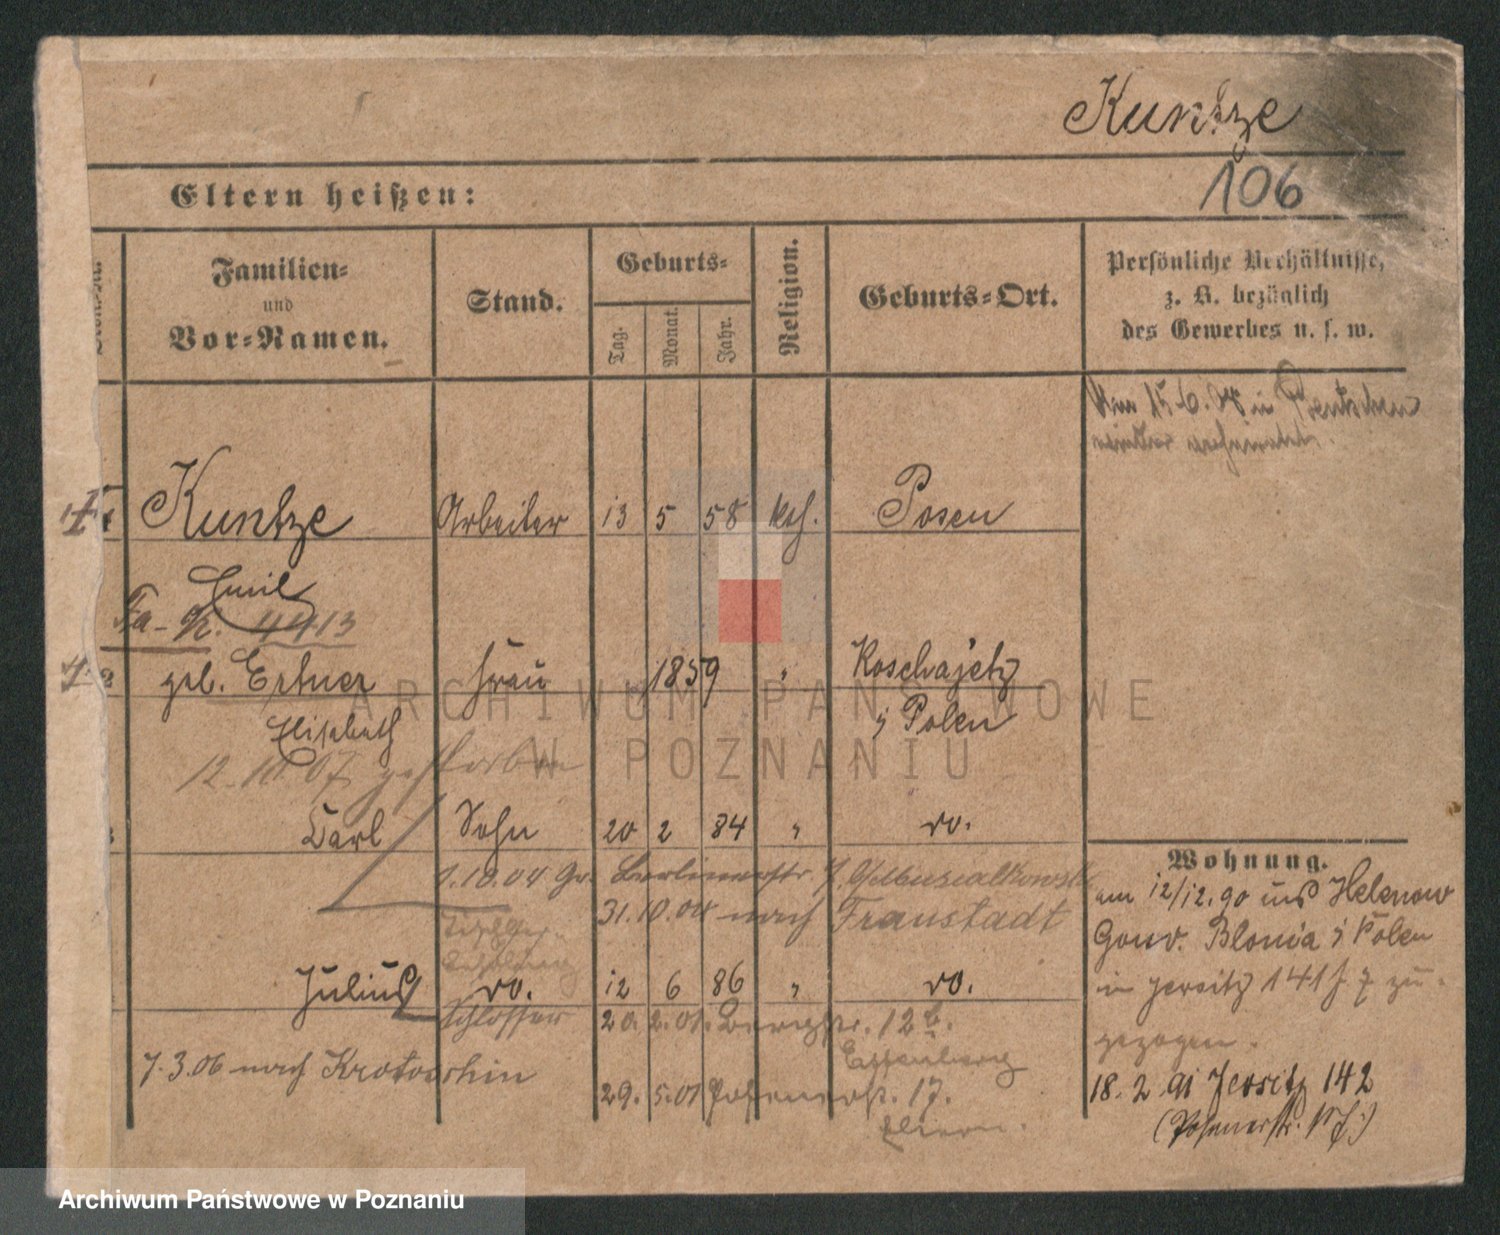 Kuntze
106
Eltern heißen:
Familien-
und
Vor-Namen.
Stand.
Geburts-
Tag.
Monat.
Jahr.
Religion.
Geburts-Ort.
Persönliche Verhältnisse,
z. B. bezüglich
des Gewerbes u. s. w.
Am 15.6.07 in Bentschen
Kuntze Arbeiter 13 5 58 kth. Posen
Emil
Fa-K. 4413
2 geb. Ertner Frau 1859 " Koschajetz
Elisabeth i Polen
12.10.07 gestorben
Carl Sohn 20 2 84 " do.
1.10.04 Gr. Berlinerstr. 7.
31.10.04 nach Fraustadt
Julius do. 12 6 86 " do.
Schlosser 20. 2. 01. Bergstr. 12b.
7.3.06 nach Krotoschin
29. 5. 01 Posenerstr. 17.
Eltern.
Wohnung.
am 12/12.90 aus Helenow
Gouv. Blonia i Polen
in Jersitz 141 b. 7 zu-
gezogen.
18. 2 91 Jersitz 142
(Posenerstr.
ARCHIWUM PAŃSTWOWE
W POZNANIU
Archiwum Państwowe w Poznaniu